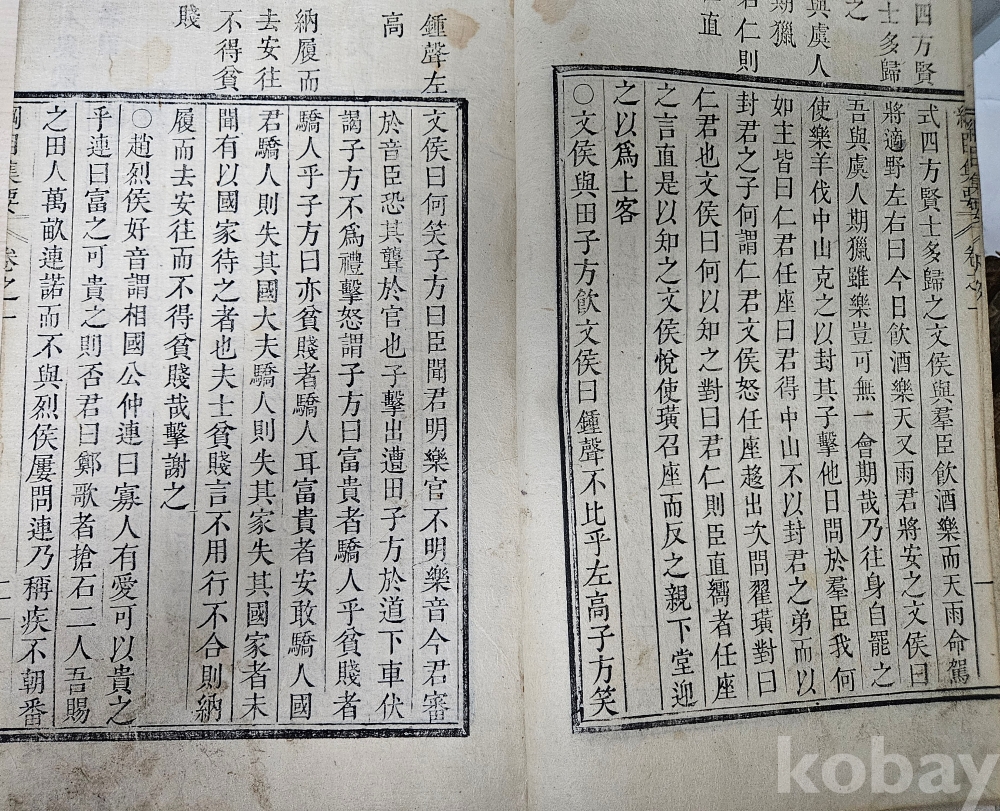 四方賢
士多歸
之
與虞人
期獵
君仁則
臣直
式四方賢士多歸之文侯與羣臣飮酒樂而天雨命駕
將適野左右曰今日飮酒樂天又雨君將安之文侯曰
吾與虞人期獵雖樂豈可無一會期哉乃往身自罷之
使樂羊伐中山克之以封其子擊他日問於羣臣我何
如主皆曰仁君任座曰君得中山不以封君之弟而以
封君之子何謂仁君文侯怒任座趍出次問翟璜對曰
仁君也文侯曰何以知之對曰君仁則臣直嚮者任座
之言直是以知之文侯悅使璜召座而反之親下堂迎
之以爲上客
○文侯與田子方飮文侯曰鍾聲不比乎左高子方笑
鍾聲左
高
納履而
去安往
不得貧
賤
文侯曰何笑子方曰臣聞君明樂官不明樂音今君審
於音臣恐其聾於官也子擊出遭田子方於道下車伏
謁子方不爲禮擊怒謂子方曰富貴者驕人乎貧賤者
驕人乎子方曰亦貧賤者驕人耳富貴者安敢驕人國
君驕人則失其國大夫驕人則失其家失其國家者未
聞有以國家待之者也夫士貧賤言不用行不合則納
履而去安往而不得貧賤哉擊謝之
○趙烈侯好音謂相國公仲連曰寡人有愛可以貴之
乎連曰富之可貴之則否君曰鄭歌者搶石二人吾賜
之田人萬畝連諾而不與烈侯屢問連乃稱疾不朝番
綱目集要 卷之一
二
kobay